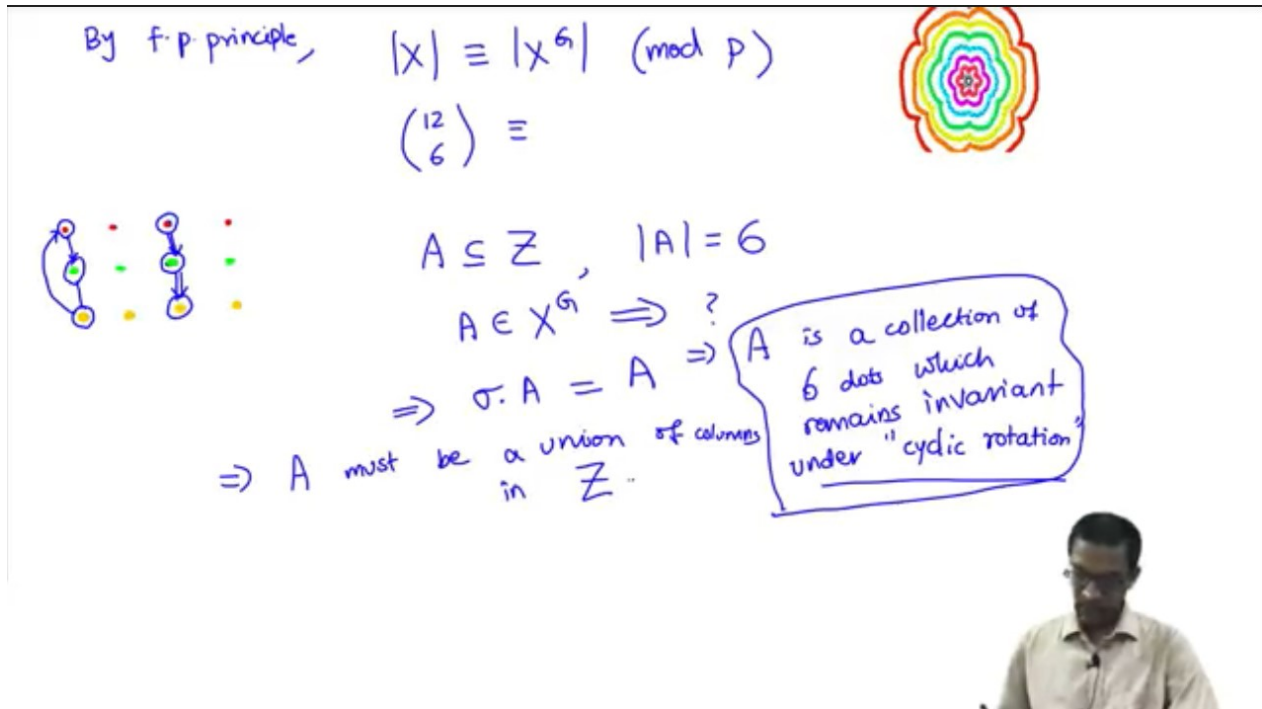 By f.p. principle, |X| ≡ |X^G| (mod p)
(12 6) ≡
A ⊆ Z, |A| = 6
A ∈ X^G ⟹ ?
⟹ σ. A = A ⟹ A is a collection of
6 dots which
remains invariant
under "cyclic rotation"
⟹ A must be a union of columns
in Z.